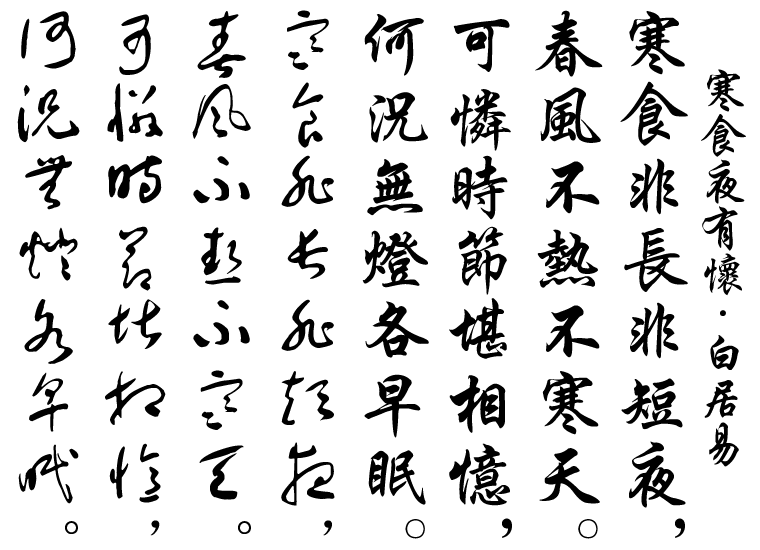 寒食夜有懷·白居易
寒食非長非短夜，
春風不熱不寒天。
可憐時節堪相憶，
何況無燈各早眠。
寒食非長非短夜，
春風不熱不寒天。
可憐時節堪相憶，
何況無燈各早眠。